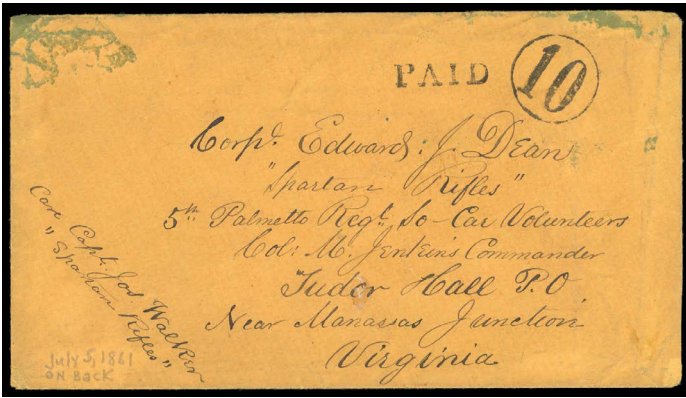 PAID 10
Corpl. Edward: J. Dean
"Spartan Rifles"
5th Palmetto Regt. So-Car Volunteers
Col: M. Jenkins Commander
Tudor Hall P.O
Near Manassas Junction
Virginia
Care Capt. Jos Walker
"Spartan Rifles"
July 5, 1861
ON Back